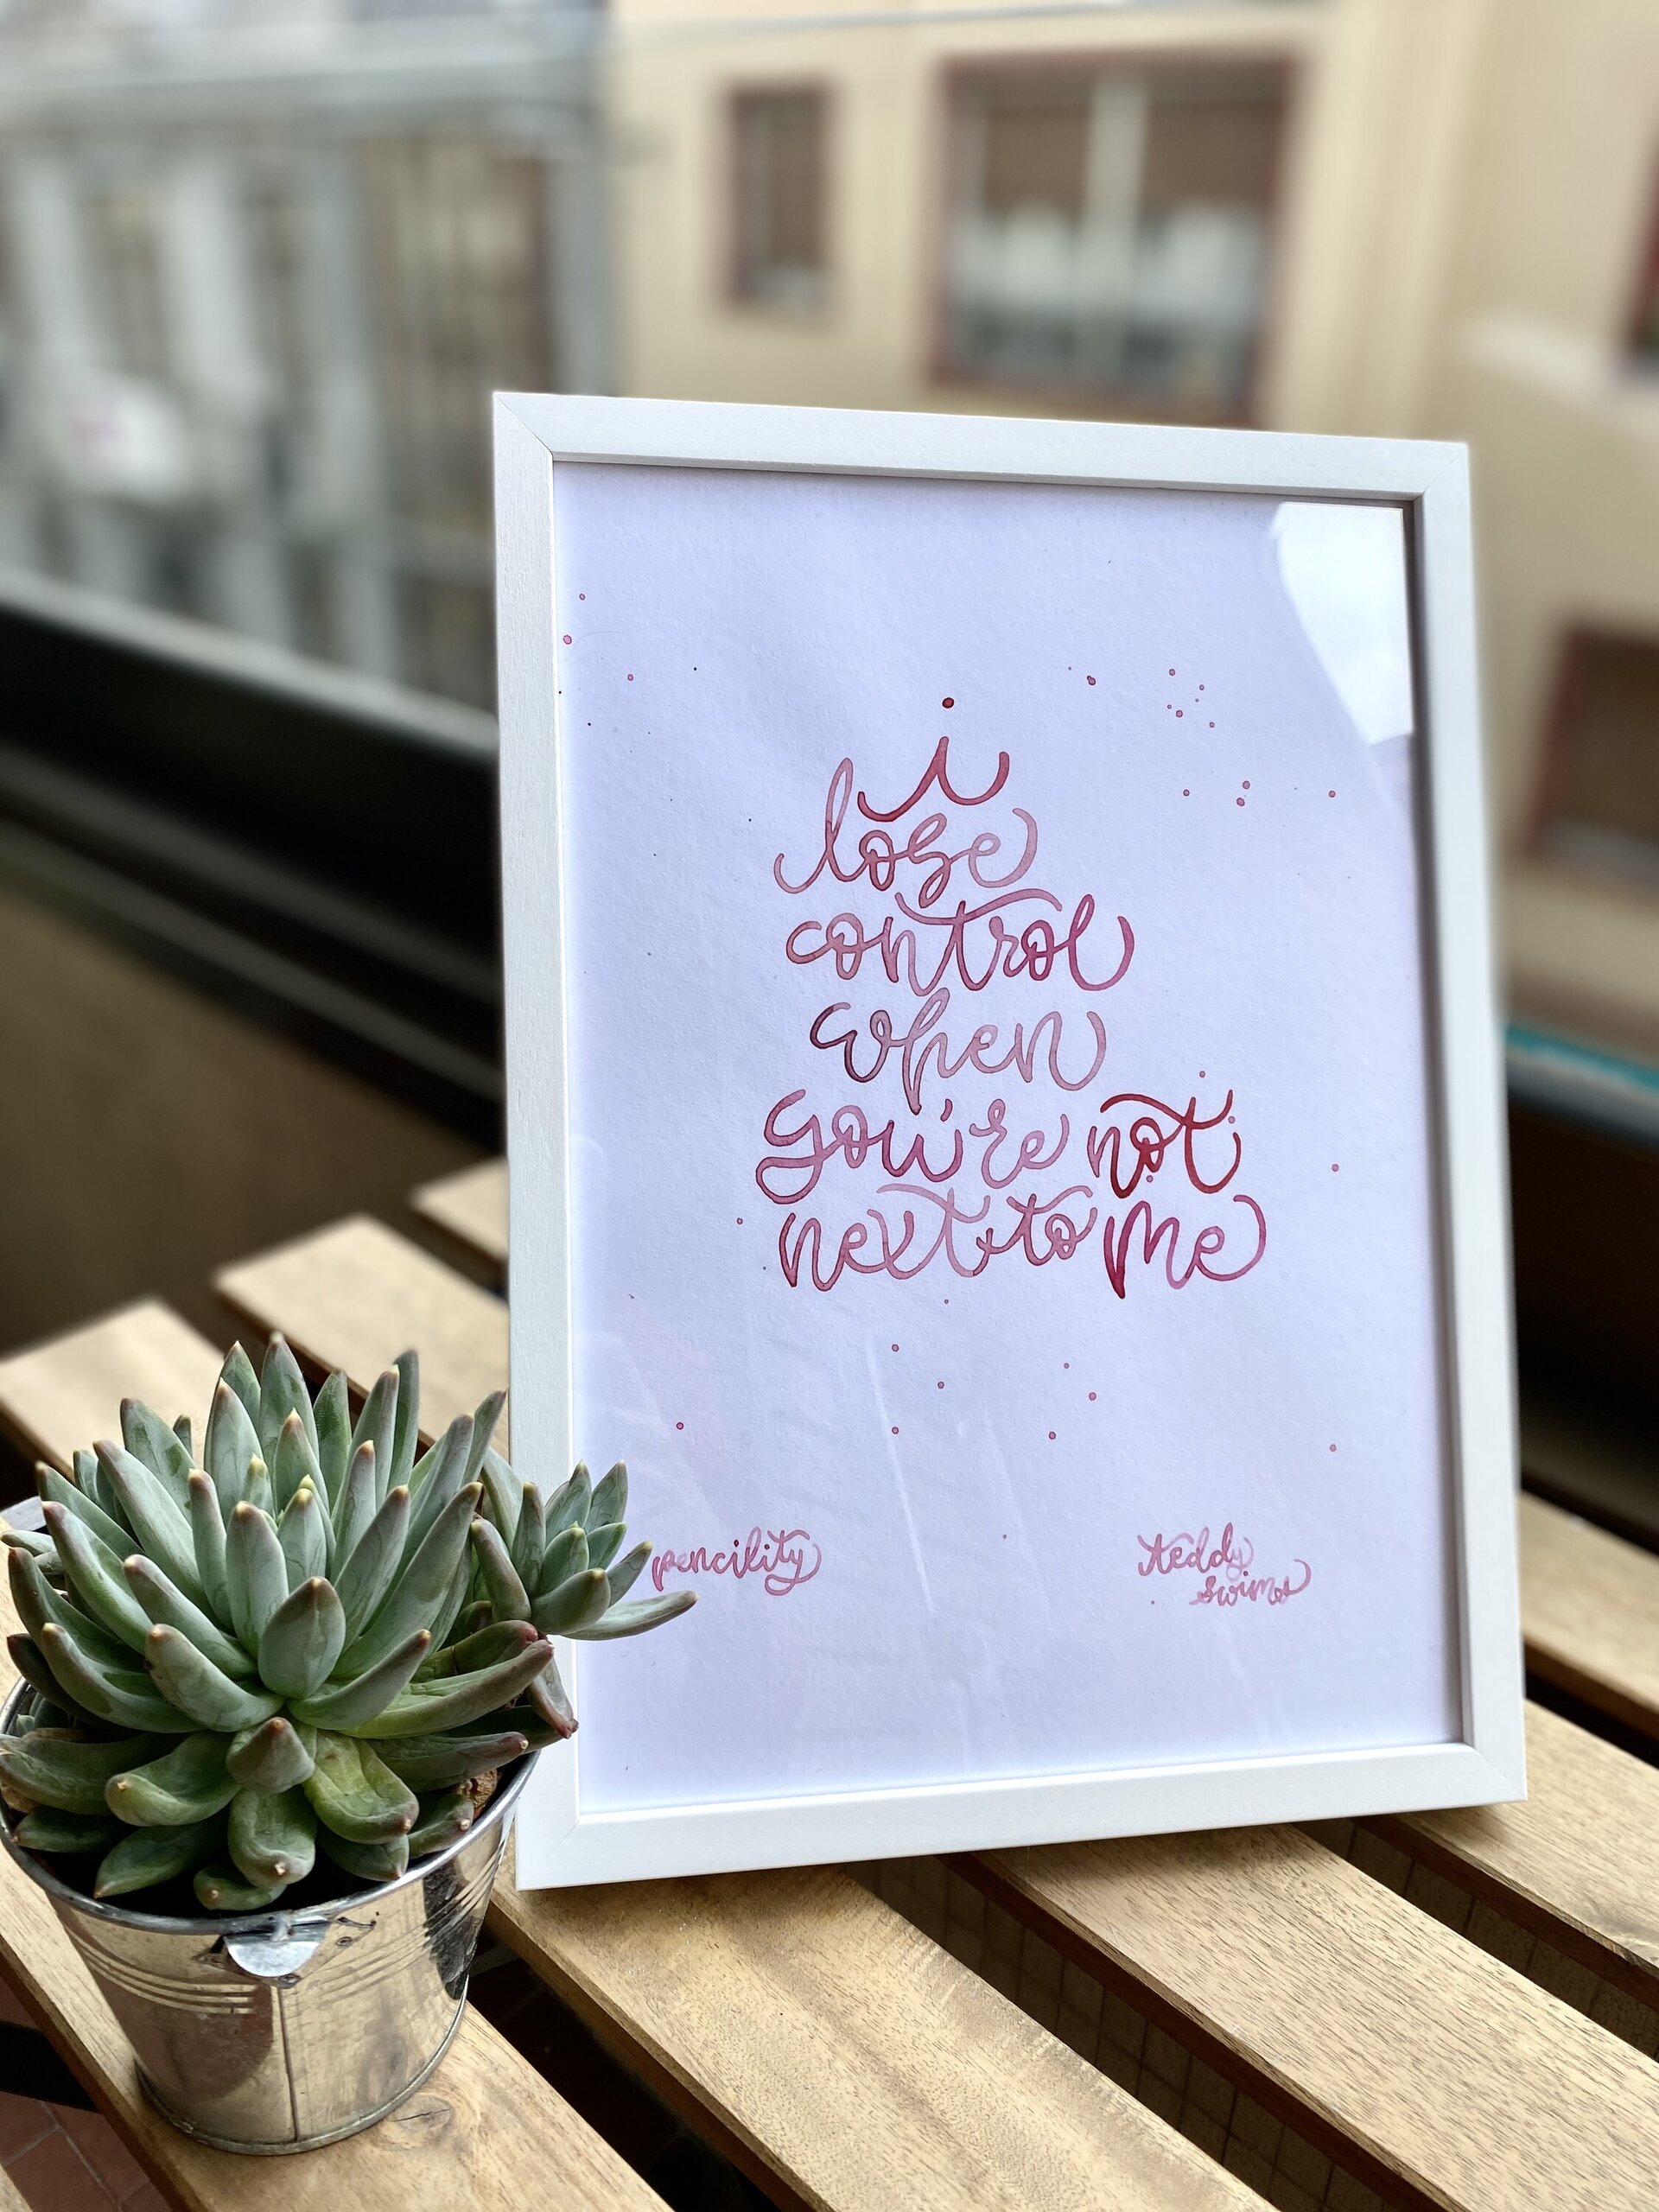 i
lose
control
when
you're not
next to me
pencility
teddy
swims